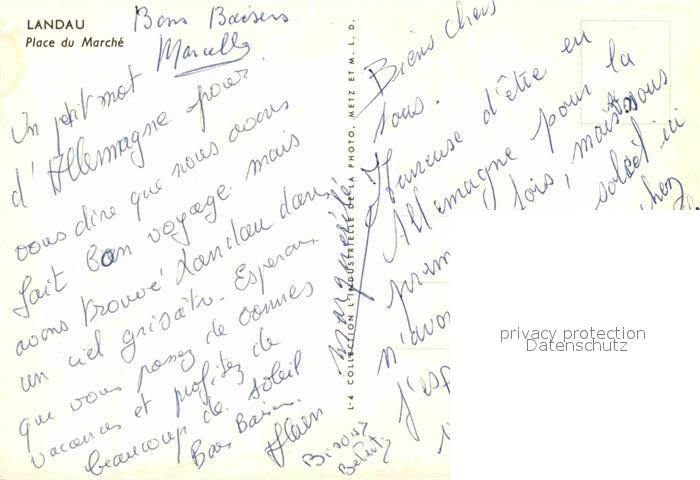 LANDAU
Place du Marché
Bons Baisers
Marcelle
Un petit mot
d'Allemagne pour
vous dire que nous avons
fait bon voyage mais
avons trouvé Landau dans
un ciel grisâtre. Esperons
que vous passez de bonnes
vacances et profitez de
beaucoup de soleil
Bons Baisers.
L-4 COLLECTION L'INDUSTRIELLE DE LA PHOTO, METZ ET M. L. D.
Marguerite
Biens chers
tous.
Heureuse d'être en
Allemagne pour la
fois, mais nous
soleil ici
chez
n'avon
j'esp
privacy protection
Datenschutz